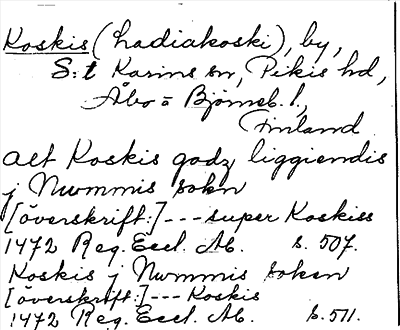 Koskis (Ladiakoski), by,
S:t Karins sn, Pikis hd,
Åbo o Björneb. l.,
Finland
aet Koskis godz liggiendis
j Nwmmis sokn
[överskrift:] --- super Koskiss
1472 Reg. Eccl. Ab. s. 507.
Koskis j Nwmmis soken
[överskrift:] --- Koskis
1472 Reg. Eccl. Ab. s. 511.